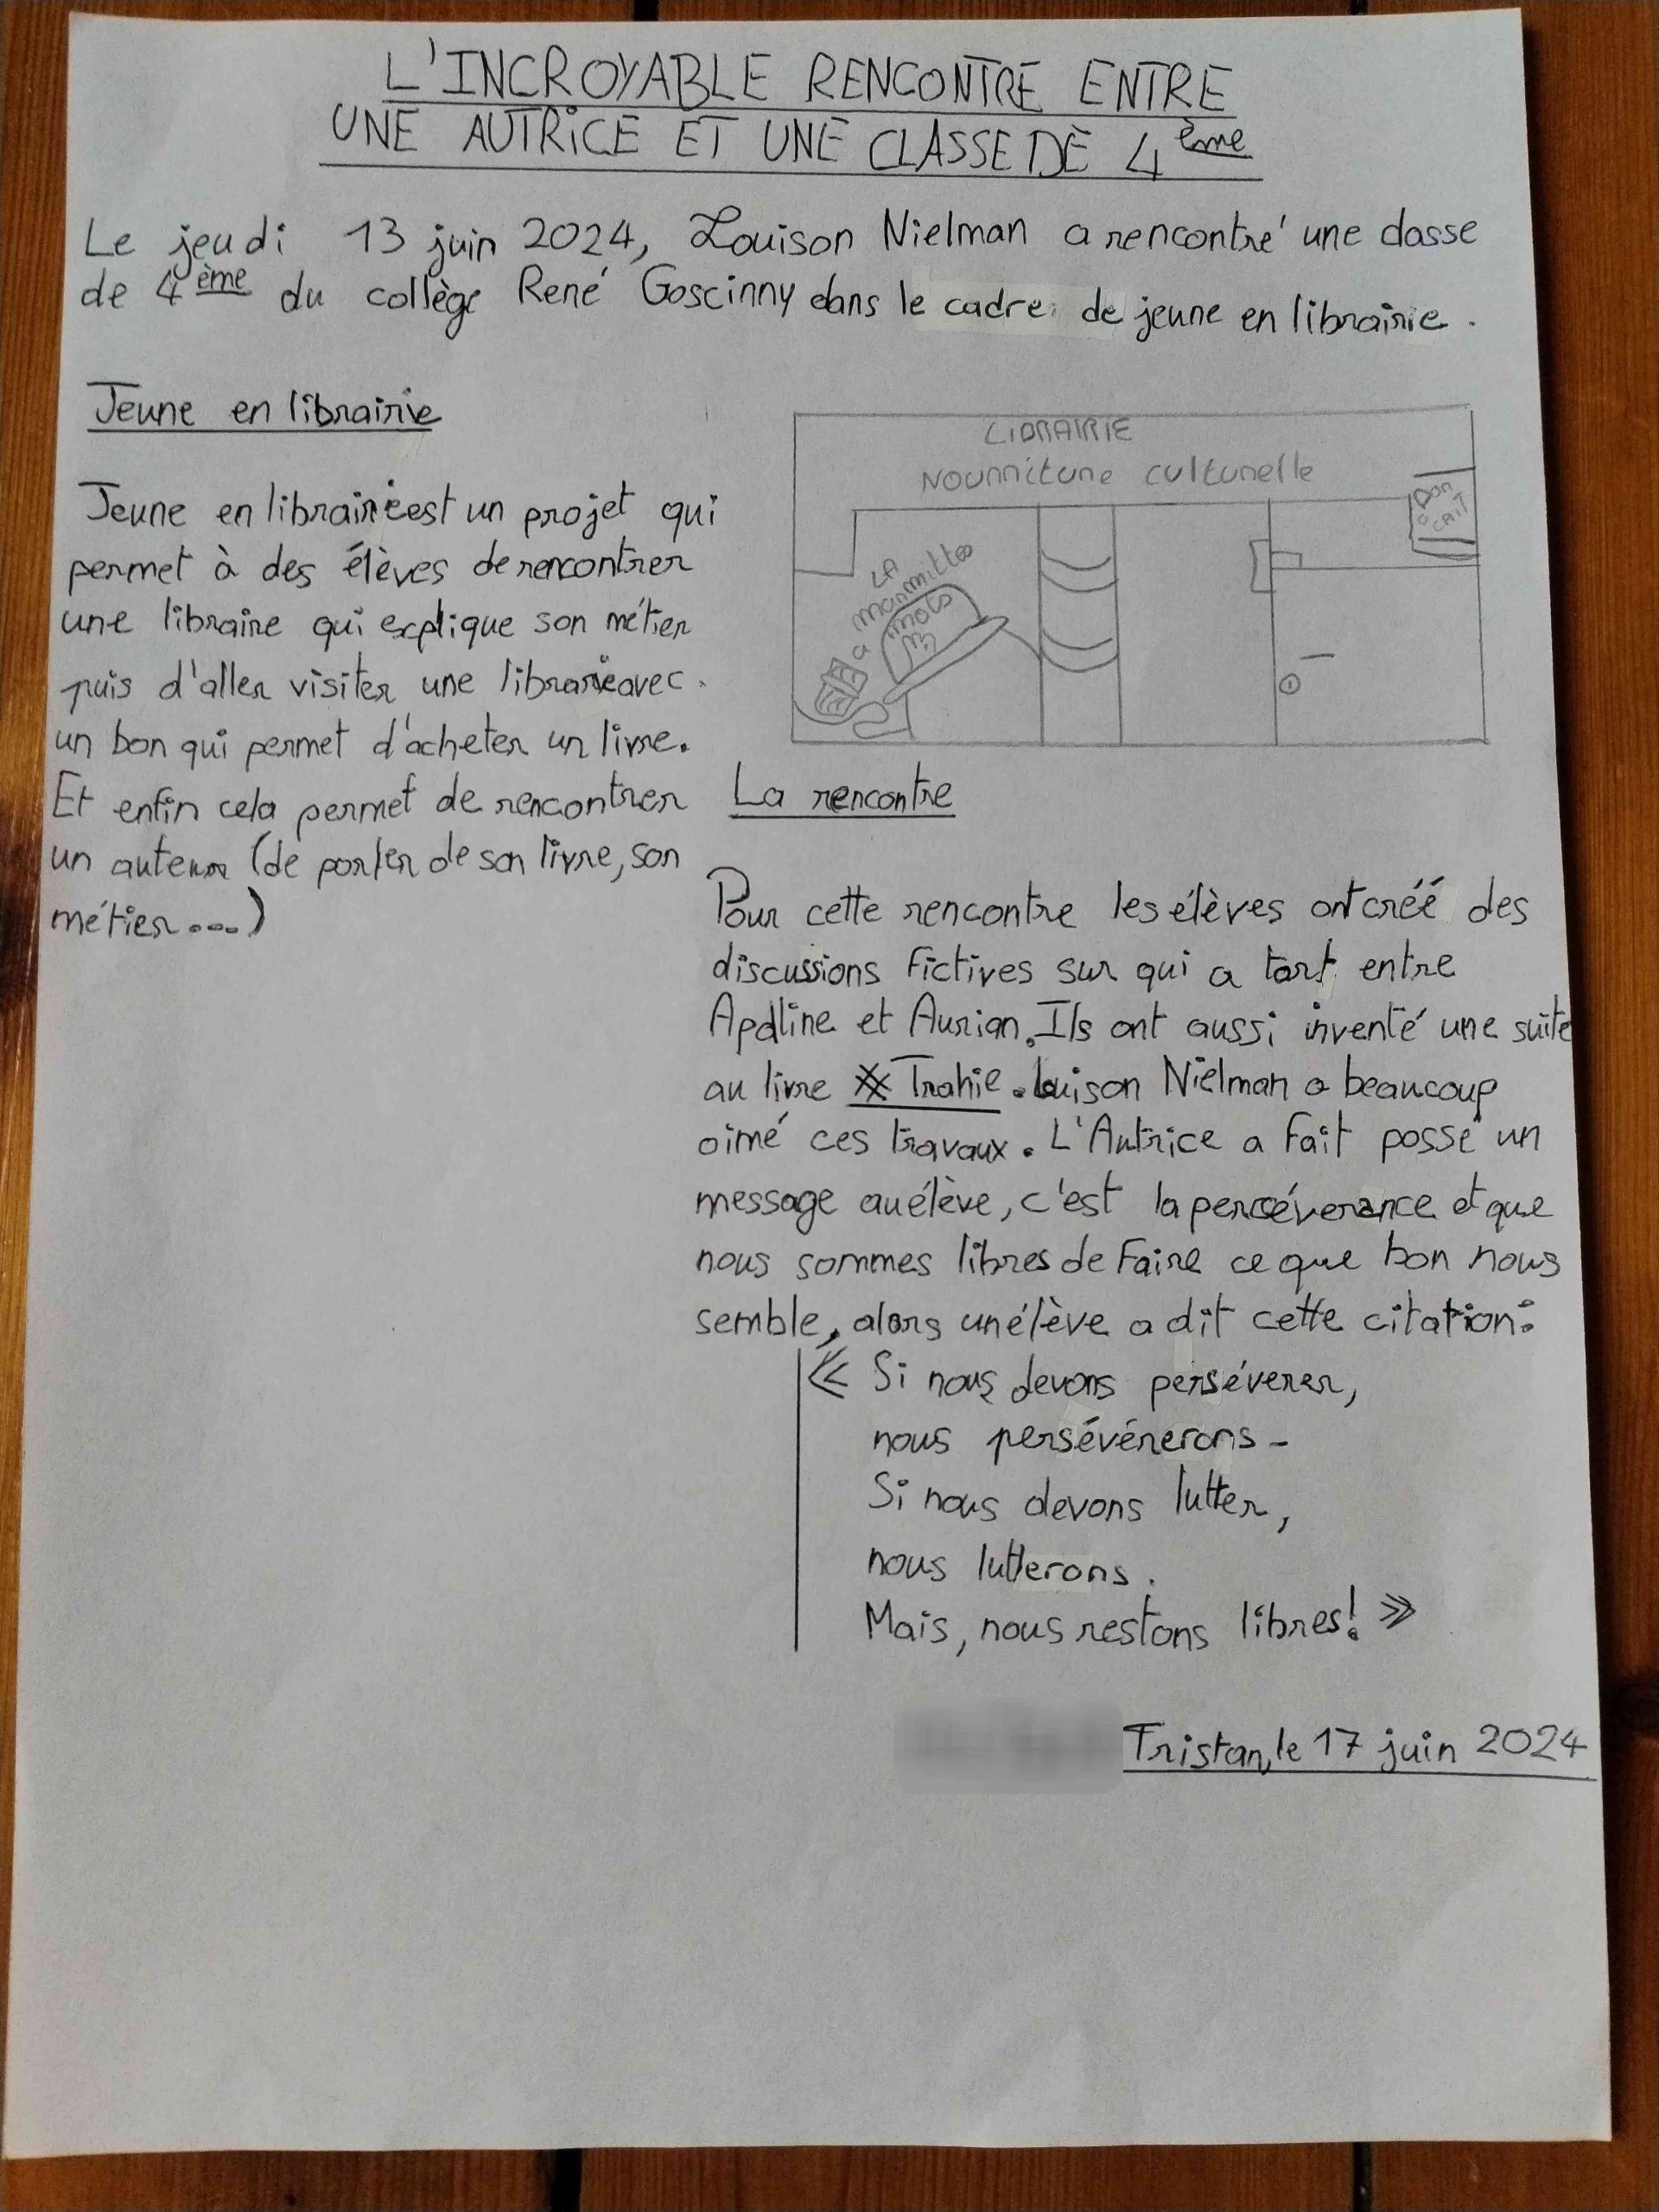 L'INCROYABLE RENCONTRE ENTRE
UNE AUTRiCE ET UNE CLASSE DE 4ème
Le jeudi 13 juin 2024, Louison Nielman a rencontré une classe
de 4ème du collège René Goscinny dans le cadre de jeune en librairie.
Jeune en librairie
Jeune en librairie est un projet qui
permet à des élèves de rencontrer
une libraire qui explique son métier
puis d'aller visiter une librarie avec
un bon qui permet d'acheter un livre.
Et enfin cela permet de rencontrer
un auteur (de parler de son livre, son
métier...)
LIBRAIRIE
Nourriture culturelle
LA
marmite
a
mots
La rencontre
Pour cette rencontre les élèves ont créé des
discussions fictives sur qui a tort entre
Apolline et Aurian. Ils ont aussi inventé une suite
au livre Trahie. Louison Nielman a beaucoup
aimé ces travaux. L'Autrice a fait passé un
message au élève, c'est la percéverance et que
nous sommes libres de faire ce que bon nous
semble, alors un élève a dit cette citation:
« Si nous devons persévérer,
nous persévérerons.
Si nous devons lutter,
nous lutterons.
Mais, nous restons libres! »
Tristan, le 17 juin 2024